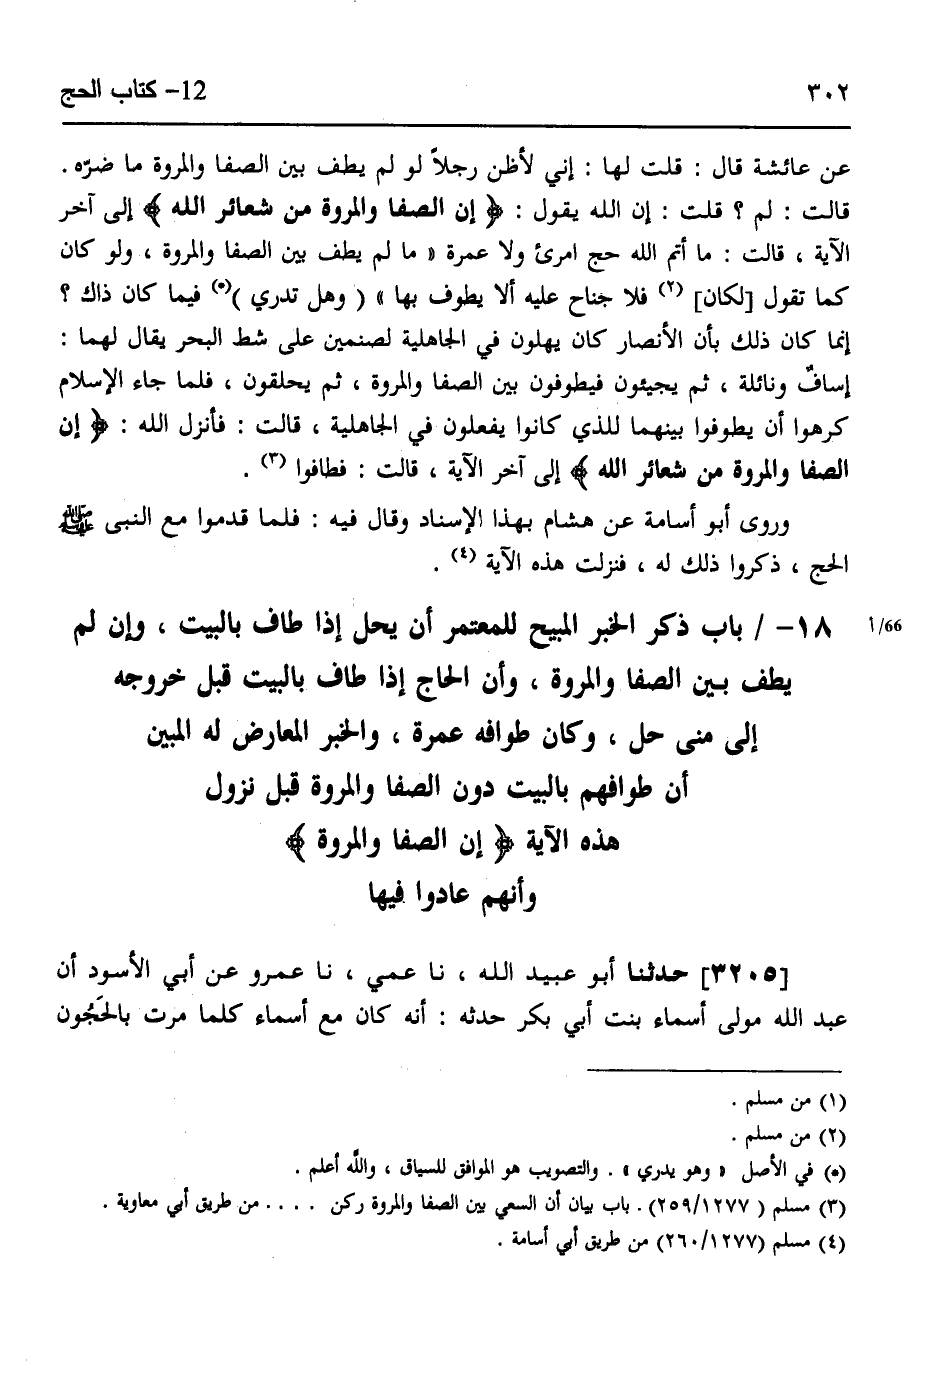 ٣٠٢
12- كتاب الحج
عن عائشة قال : قلت لها : إني لأظن رجلاً لو لم يطف بين الصفا والمروة ما ضرّه .
قالت : لم ؟ قلت : إن الله يقول : ﴿ إن الصفا والمروة من شعائر الله ﴾ إلى آخر
الآية ، قالت : ما أتم الله حج امرئ ولا عمرة « ما لم يطف بين الصفا والمروة ، ولو كان
كما تقول [لكان] (٢) فلا جناح عليه ألا يطوف بها » ( وهل تدري )(*) فيما كان ذاك ؟
إنما كان ذلك بأن الأنصار كان يهلون في الجاهلية لصنمين على شط البحر يقال لهما :
إسافٌ ونائلة ، ثم يجيئون فيطوفون بين الصفا والمروة ، ثم يحلقون ، فلما جاء الإسلام
كرهوا أن يطوفوا بينهما للذي كانوا يفعلون في الجاهلية ، قالت : فأنزل الله : ﴿ إن
الصفا والمروة من شعائر الله ﴾ إلى آخر الآية ، قالت : فطافوا (٣) .
وروى أبو أسامة عن هشام بهذا الإسناد وقال فيه : فلما قدموا مع النبى ﷺ
الحج ، ذكروا ذلك له ، فنزلت هذه الآية (٤) .
١٨- / باب ذكر الخبر المبيح للمعتمر أن يحل إذا طاف بالبيت ، وإن لم
١/66
يطف بين الصفا والمروة ، وأن الحاج إذا طاف بالبيت قبل خروجه
إلى منى حل ، وكان طوافه عمرة ، والخبر المعارض له المبين
أن طوافهم بالبيت دون الصفا والمروة قبل نزول
هذه الآية ﴿ إن الصفا والمروة ﴾
وأنهم عادوا فيها
[٣٢٠٥] حدثنا أبو عبيد الله ، نا عمي ، نا عمرو عن أبي الأسود أن
عبد الله مولى أسماء بنت أبي بكر حدثه : أنه كان مع أسماء كلما مرت بالحَجُون
(١) من مسلم .
(٢) من مسلم .
(*) في الأصل « وهو يدري » . والتصويب هو الموافق للسياق ، واللَّه أعلم .
(٣) مسلم ( ٢٥٩/١٢٧٧) . باب بيان أن السعي بين الصفا والمروة ركن . . . . من طريق أبي معاوية .
(٤) مسلم (٢٦٠/١٢٧٧) من طريق أبي أسامة .